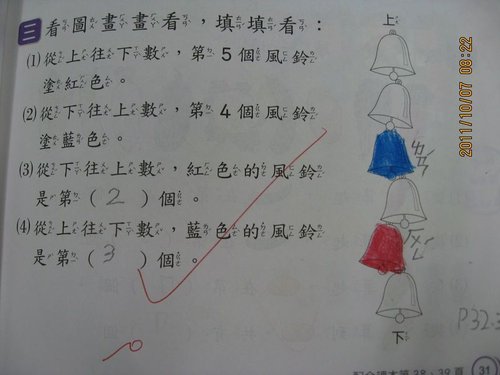 三 看圖畫畫看，填填看：
(1)從上往下數，第5個風鈴
塗紅色。
(2)從下往上數，第4個風鈴
塗藍色。
(3)從下往上數，紅色的風鈴
是第（2）個。
(4)從上往下數，藍色的風鈴
是第（3）個。
上
下
P.32.3
31
2011/10/07 08:22